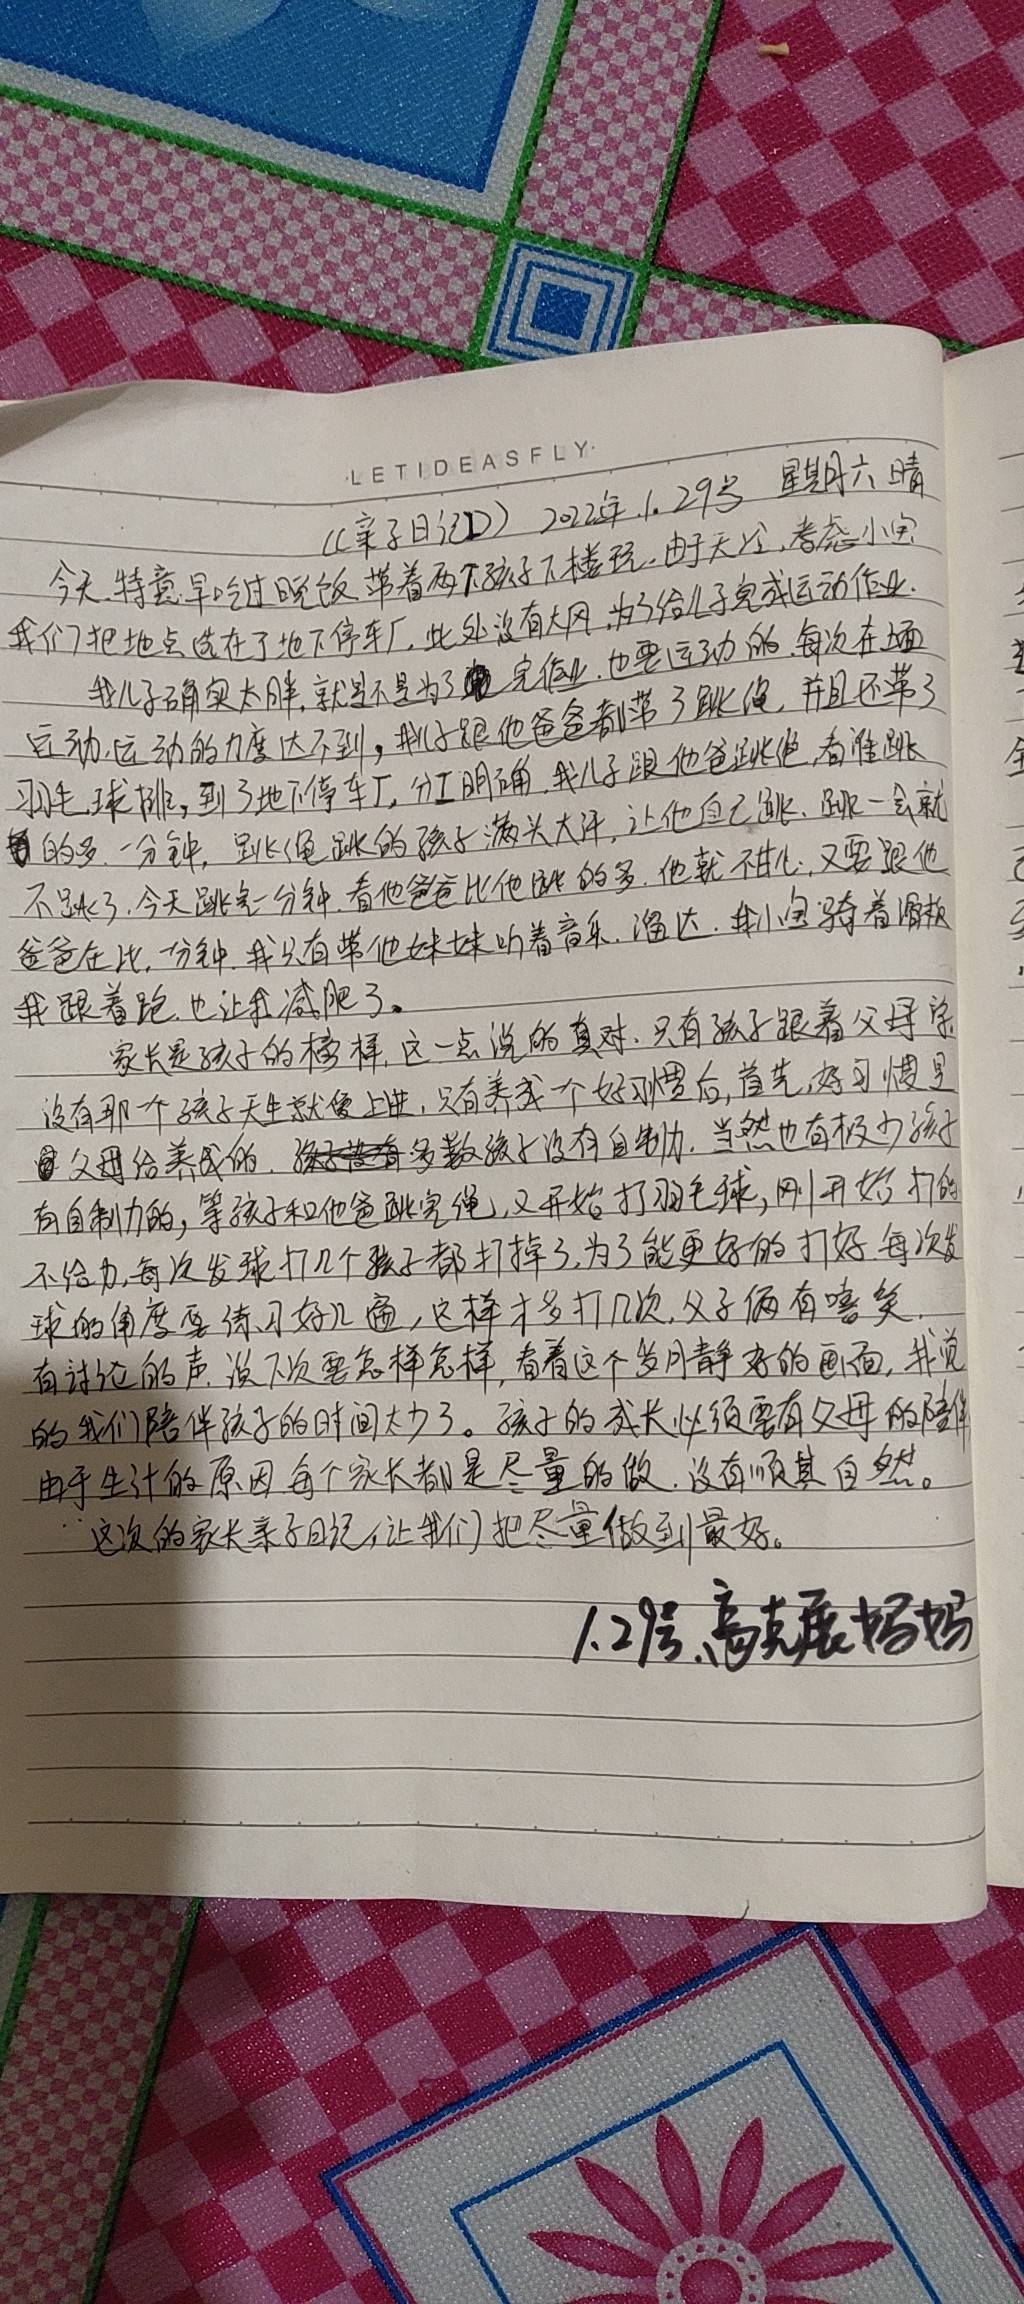 LETIDEASFLY
《亲子日记》 2022年.1.29号 星期六 晴
今天.特意早吃过晚饭 带着两个孩子下楼玩.由于天冷,考虑小宝
我们把地点选在了地下停车厂,此处没有大风,为了给儿子完成运动作业.
我儿子确实太胖,就是不是为了完作业.也要运动的.每次在上面
运动.运动的力度达不到,我儿子跟他爸爸都带了跳绳,并且还带了
羽毛球拍,到了地下停车厂,分工明确.我儿子跟他爸跳绳,看谁跳
的多.一分钟,跳绳跳的孩子满头大汗,让他自己跳.跳一会就
不跳了,今天跳完一分钟.看他爸爸比他跳的多.他就不甘心,又要跟他
爸爸在比,一分钟.我只有带他妹妹听着音乐.溜达.我小宝骑着滑板
我跟着跑.也让我减肥了。
家长是孩子的榜样,这一点说的真对.只有孩子跟着父母学.
没有那一个孩子天生就爱上进,只有养成一个好习惯后,首先,好习惯是
父母给养成的.多数孩子没有自制力.当然也有极少孩子
有自制力的,等孩子和他爸跳完绳,又开始打羽毛球,刚开始打的
不给力,每次发球打几个孩子都打掉了,为了能更好的打好.每次发
球的角度要练习好几遍,这样才多打几次,父子俩有嘻笑.
有讨论的声.说下次要怎样怎样,看着这个岁月静好的画面,我觉
的我们陪伴孩子的时间太少了。孩子的成长必须要有父母的陪伴
由于生计的原因每个家长都是尽量的做.没有顺其自然。
这次的家长亲子日记,让我们把尽量做到最好。
1.29号.高克展妈妈